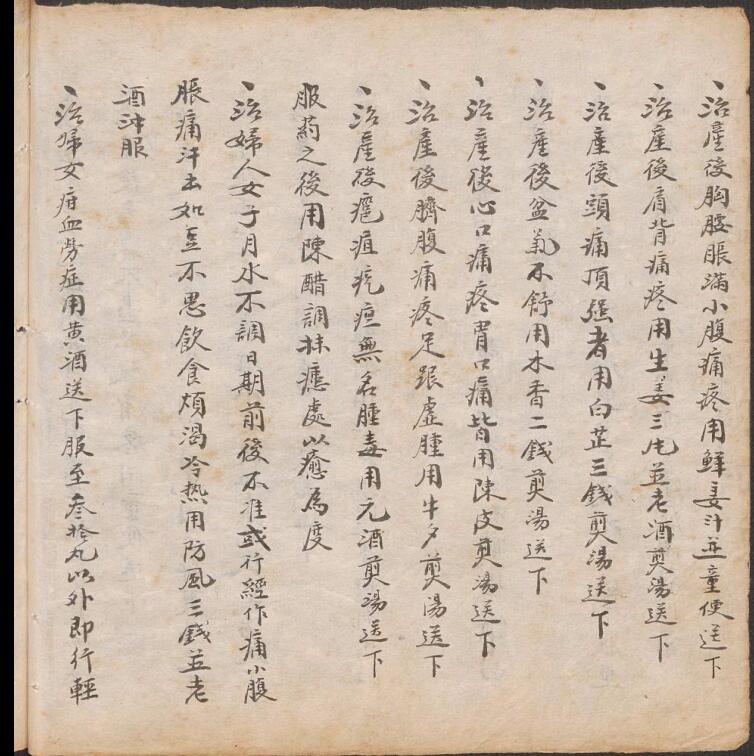 丶治產後胸腰脹滿小腹痛疼用鮮姜汁並童便送下
丶治產後肩背痛疼用生姜三片並老酒煎湯送下
丶治產後頭痛頂强者用白芷三錢煎湯送下
丶治產後盆氣不舒用木香二錢煎湯送下
丶治產後心口痛疼胃口痛皆用陳皮煎湯送下
丶治產後臍腹痛疼足跟虛腫用牛夕煎湯送下
丶治產後疽疙疸無名腫毒用元酒煎湯送下
服药之後用陳醋調抹瘡處以癒為度
丶治婦人女子月水不調日期前後不准或行經作痛小腹
脹痛汗出如豆不思飲食煩渴冷热用防風三錢並老
酒沖服
丶治婦女血勞症用黄酒送下服至叁拾丸以外即行輕